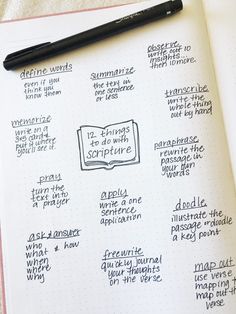 define words
even if you
think you
know them
summarize
the text in
one sentence
or less
observe
write out 10
insights...
then 10 more.
transcribe
write the
whole thing
out by hand
memorize
write on a
3x5 card &
put it where
you'll see it.
12 things
to do with
scripture
paraphrase
rewrite the
passage in
your own
words
pray
turn the
text into
a prayer
apply
write a one
sentence
application
doodle
illustrate the
passage or doodle
a key point
ask & answer
who
what & how
when
where
why
freewrite
quickly journal
your thoughts
on the verse
map out
use verse
mapping to
map out the
verse